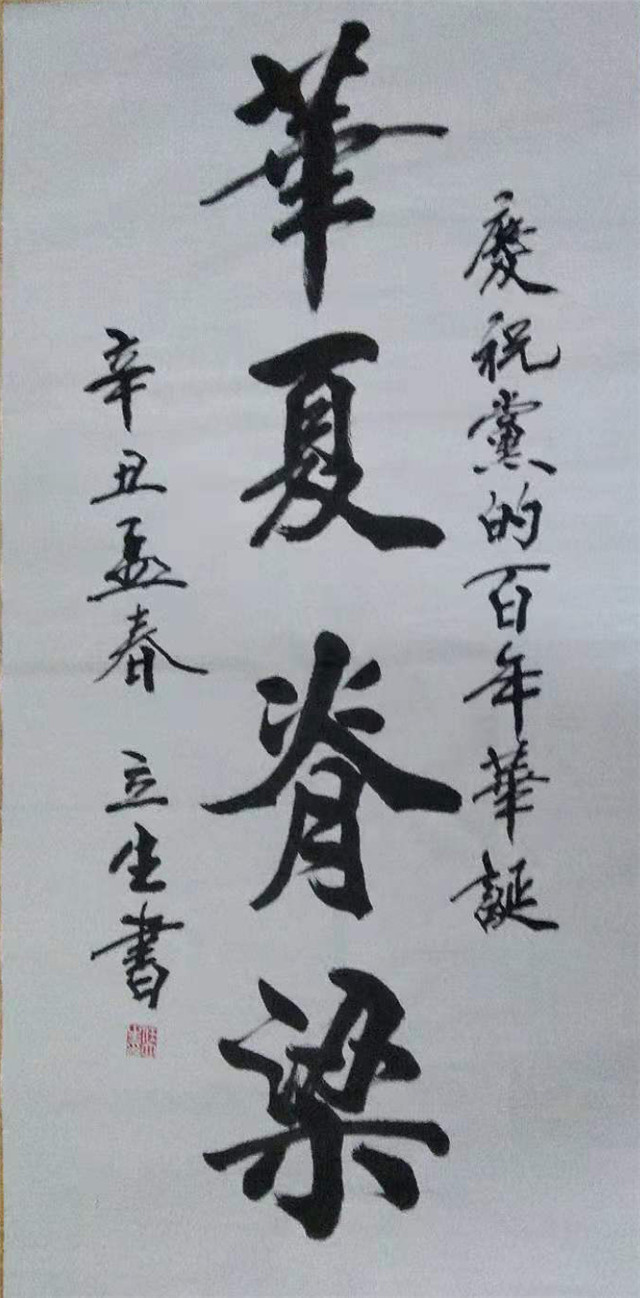 慶祝黨的百年華誕
華夏脊梁
辛丑孟春 立生書